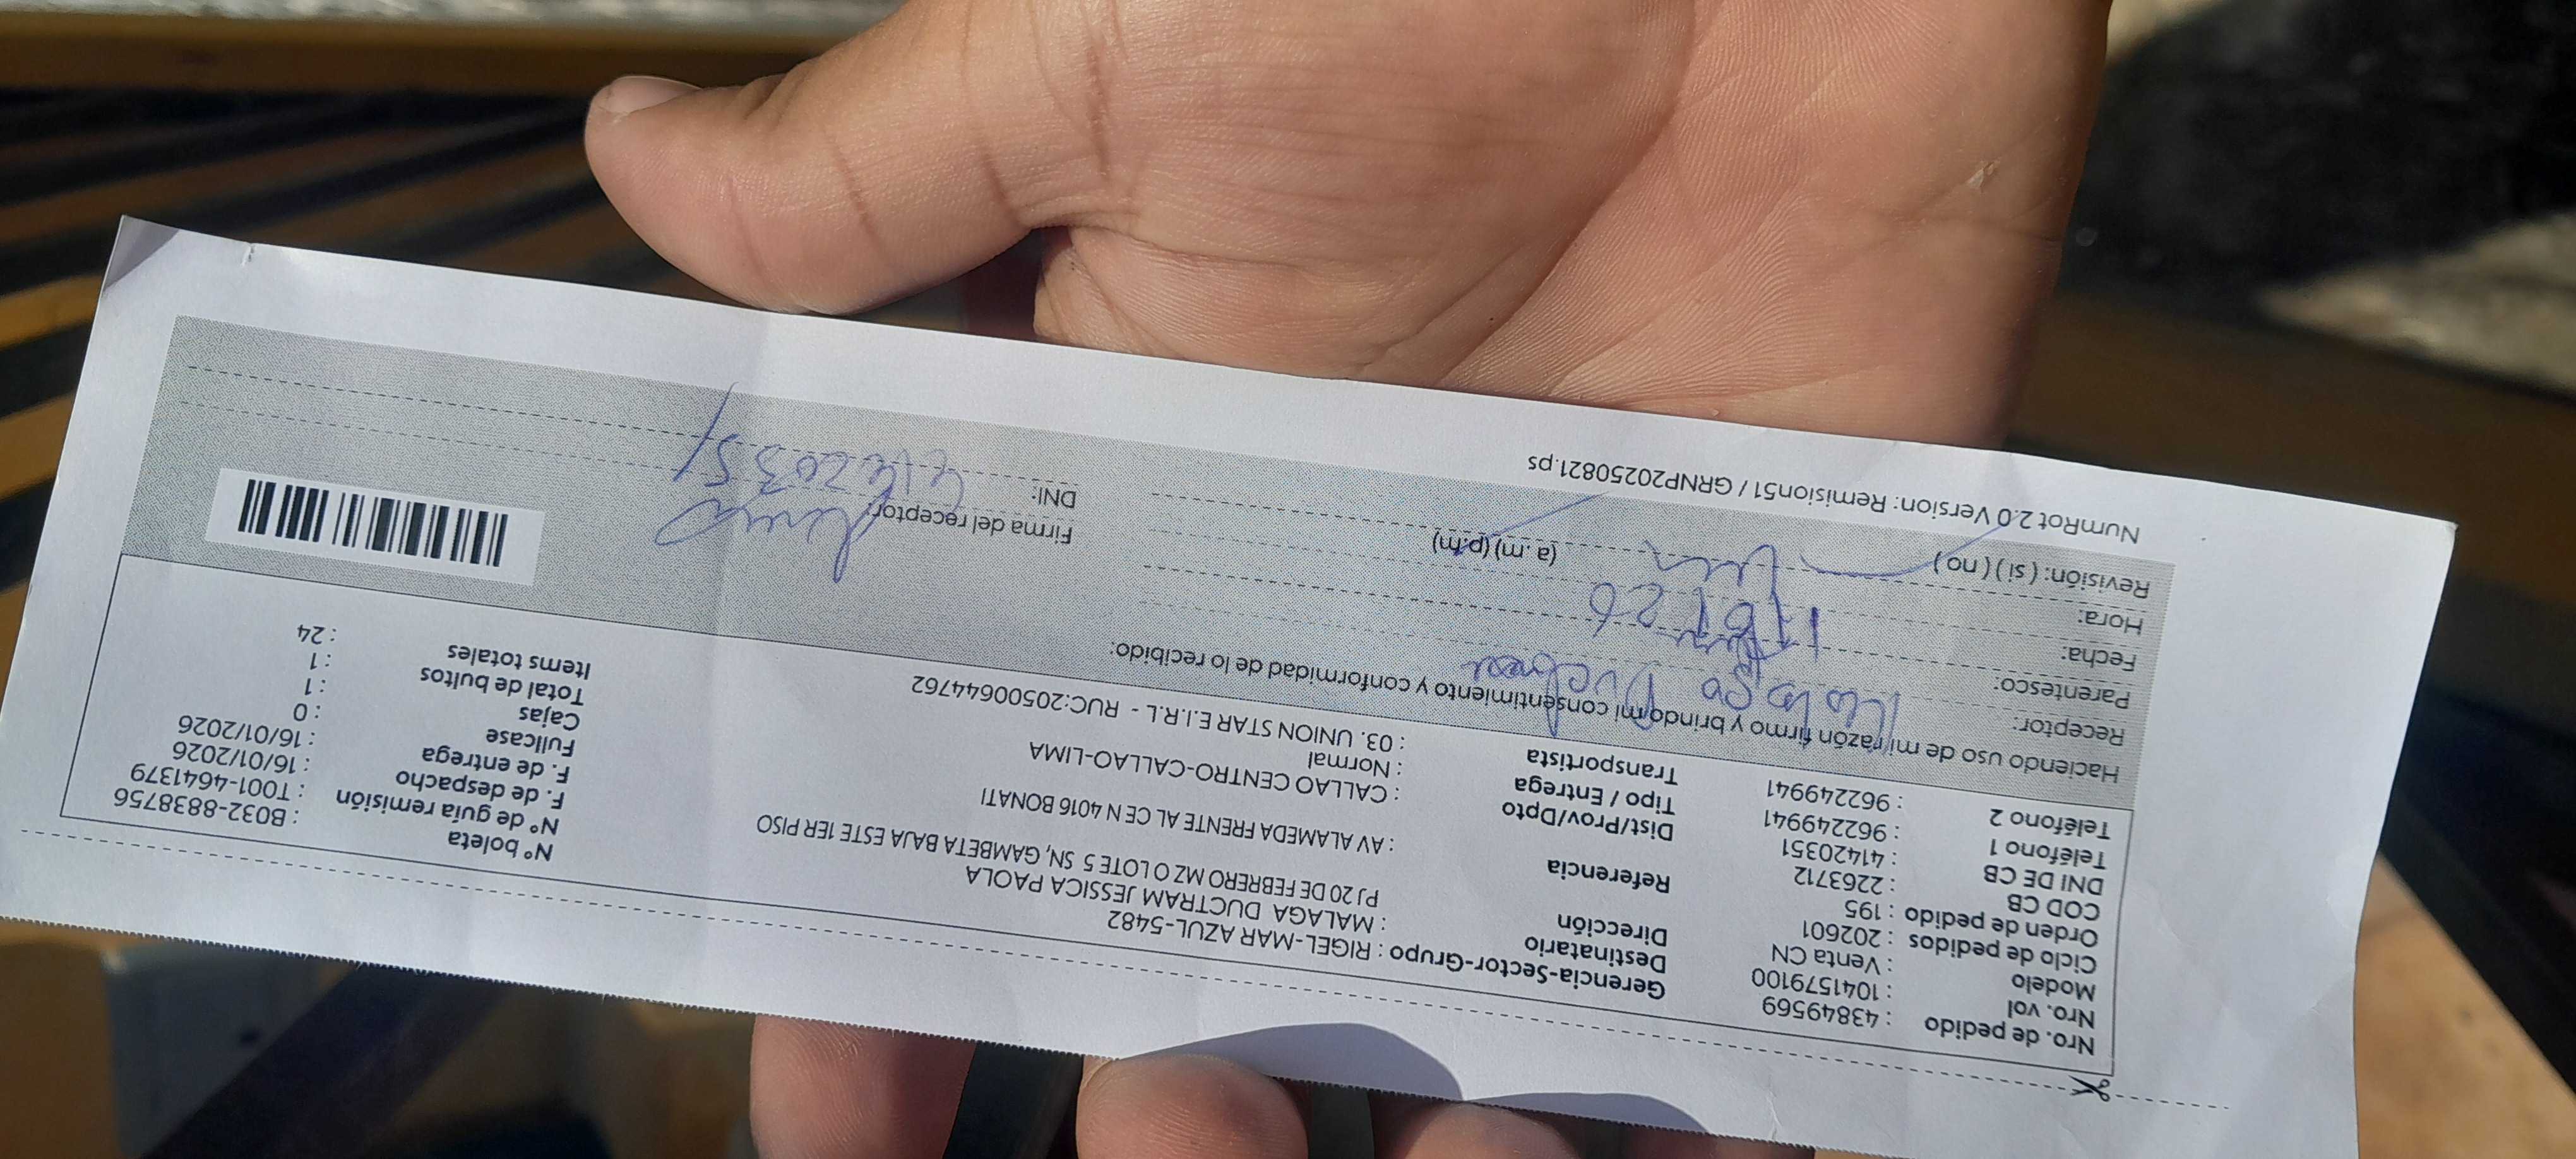 Nro. de pedido : 43849569
Nro. vol : 1041579100
Modelo : Venta CN
Ciclo de pedidos : 202601
Orden de pedido : 195
COD CB : 2263712
DNI DE CB : 41420351
Teléfono 1 : 962249941
Teléfono 2 : 962249941
Gerencia-Sector-Grupo : RIGEL-MAR AZUL-5482
Destinatario : MALAGA DUCTRAM JESSICA PAOLA
Dirección
PJ 20 DE FEBRERO MZ O LOTE 5 SN, GAMBETA BAJA ESTE 1ER PISO
Referencia : AV ALAMEDA FRENTE AL CE N 4016 BONATI
Dist/Prov/Dpto : CALLAO CENTRO-CALLAO-LIMA
Tipo / Entrega : Normal
Transportista : 03. UNION STAR E.I.R.L - RUC:20500644762
N° boleta : B032-8838756
N° de guía remisión : T001-4641379
F. de despacho : 16/01/2026
F. de entrega : 16/01/2026
Fullcase : 0
Cajas : 1
Total de bultos : 1
Items totales : 24
Haciendo uso de mi razón firmo y brindo mi consentimiento y conformidad de lo recibido:
Receptor:
Parentesco:
Fecha:
Hora: (a. m) (p.m)
Revisión: ( si ) ( no )
Firma del receptor:
DNI: 41420351
NumRot 2.0 Version: Remision51 / GRNP20250821.ps